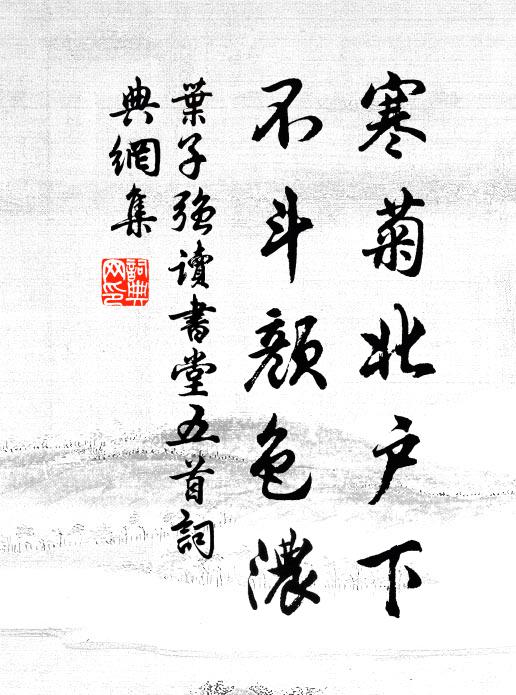 寒菊北户下
不斗颜色濃
葉子强讀書堂五首詞
典網集
詞典網印